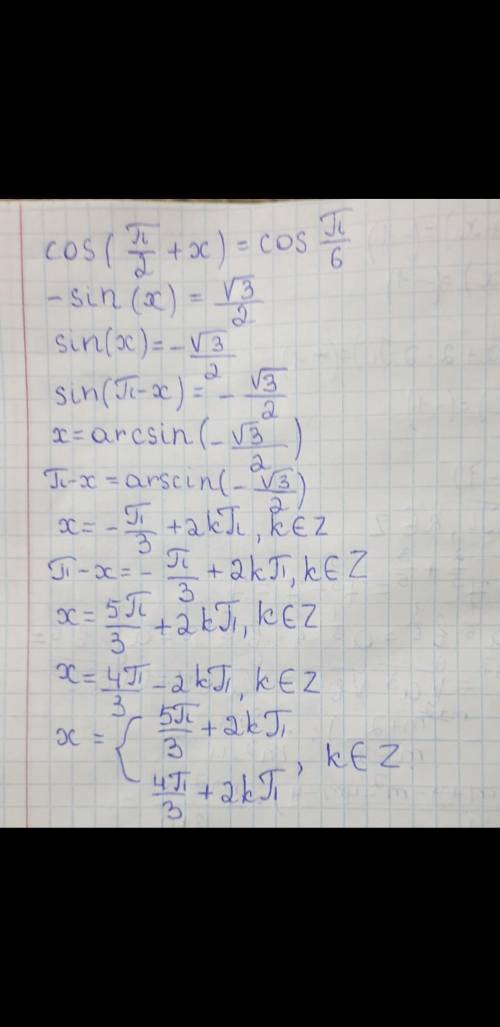 cos(π/2 + x) = cos π/6
-sin(x) = √3/2
sin(x) = -√3/2
sin(π-x) = -√3/2
x = arcsin(-√3/2)
π-x = arscin(-√3/2)
x = -π/3 + 2kπ, k∈Z
π-x = -π/3 + 2kπ, k∈Z
x = 5π/3 + 2kπ, k∈Z
x = 4π/3 - 2kπ, k∈Z
x = { 5π/3 + 2kπ
4π/3 + 2kπ , k∈Z